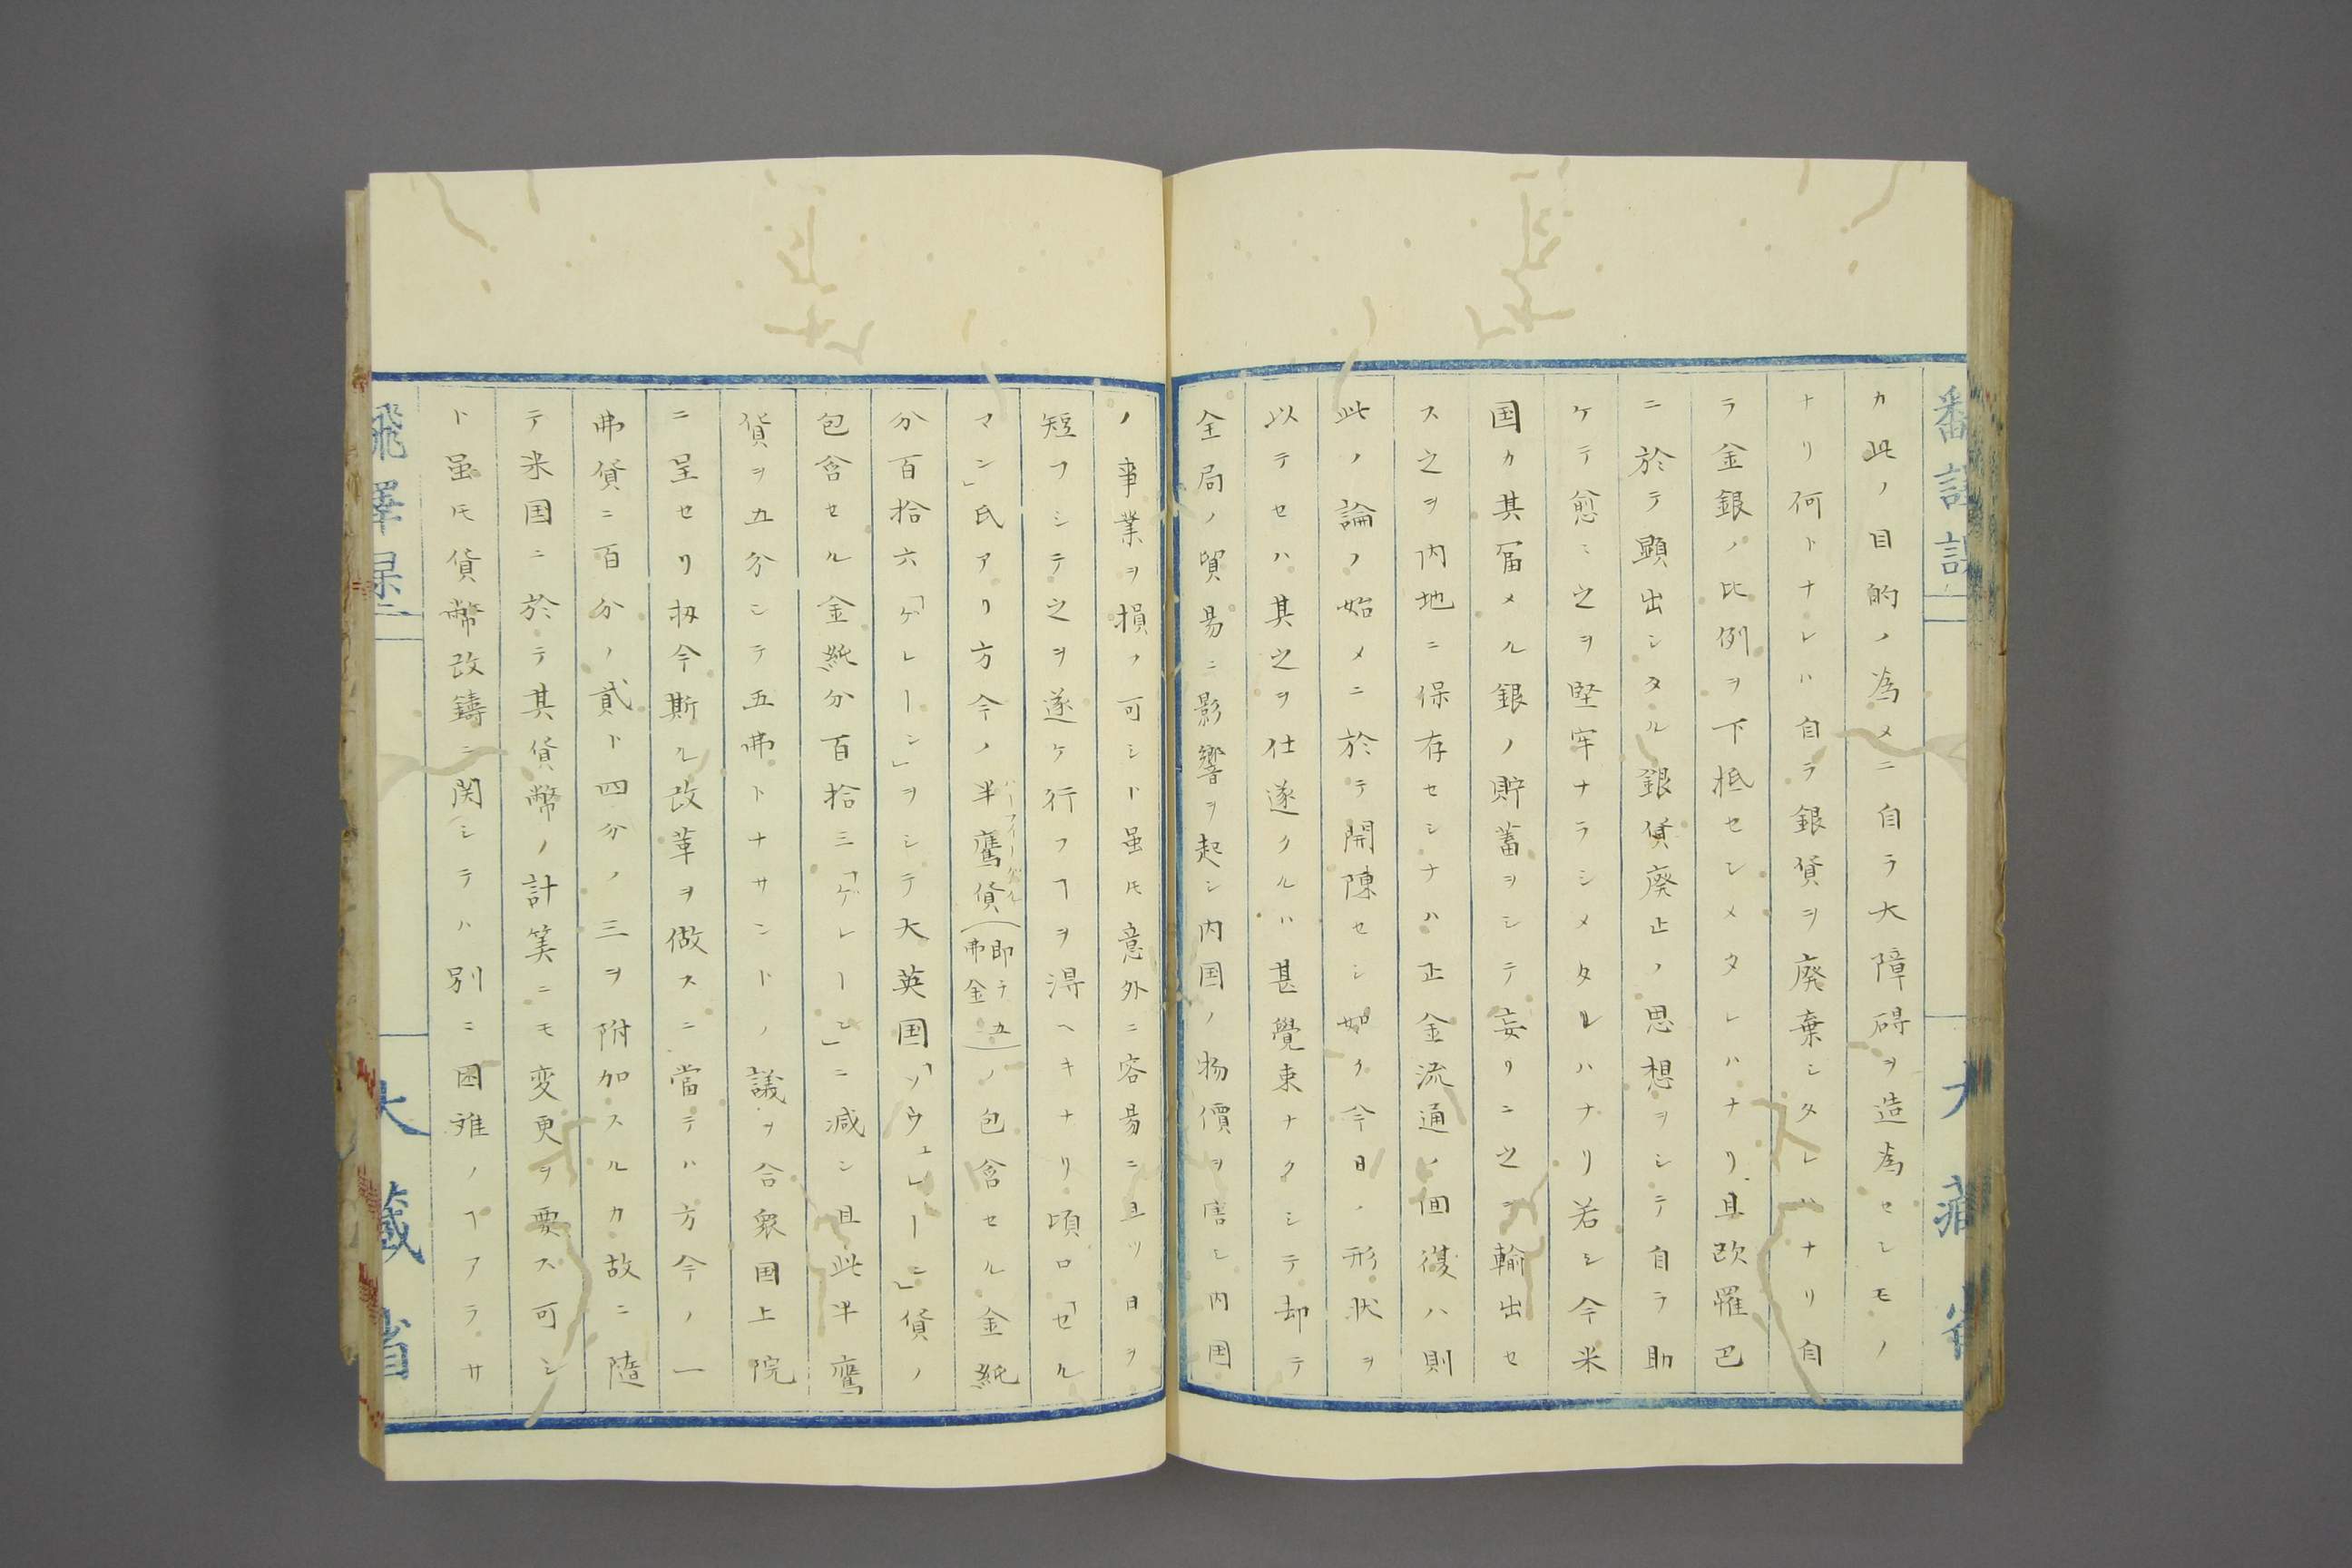 カ此ノ目的ノ為メニ自ラ大障碍ヲ造為セシモノ
ナリ何トナレハ自ラ銀貨ヲ廃棄シタレハナリ自
ラ金銀ノ比例ヲ下抵セシメタレハナリ且欧羅巴
ニ於テ顕出シタル銀貨廃止ノ思想ヲシテ自ラ助
ケテ愈ミ之ヲ堅牢ナラシメタルハナリ若シ今米
国カ其畜メル銀ノ貯蓄ヲシテ妄リニ之ヲ輸出セ
ス之ヲ内地ニ保存セシナハ正金流通ノ回復ハ則
此ノ論ノ始メニ於テ開陳セシ如ク今日ノ形状ヲ
以テセハ其之ヲ仕遂クルハ甚覺束ナクシテ却テ
全局ノ貿易ニ影響ヲ起シ内国ノ物價ヲ害シ内国
ノ事業ヲ損ノ可シト虽𪜈意外ニ容易ニ且ツ日ヲ
短フシテ之ヲ遂ケ行フヿヲ得ヘキナリ頃ロ「セル
マン」氏アリ方今ノ半鷹貨(即チ五弗金)ノ包含セル金純
ハーフイーグル
分百拾六「ゲレーン」ヲシテ大英国「ソウェレーン」貨ノ
包含セル金純分百拾三「ゲレーン」ニ减シ且此半鷹
貨ヲ五分シテ五弗トナサントノ議ヲ合衆国上院
ニ呈セリ扨今斯ル改革ヲ做スニ當テハ方今ノ一
弗貨ニ百分ノ貳ト四分ノ三ヲ附加スルカ故ニ隨
テ米国ニ於テ其貨幣ノ計筭ニモ変更ヲ要ス可シ
ト虽𪜈貨幣改鑄ニ関シテハ別ニ困难ノヿアラサ
大藏省